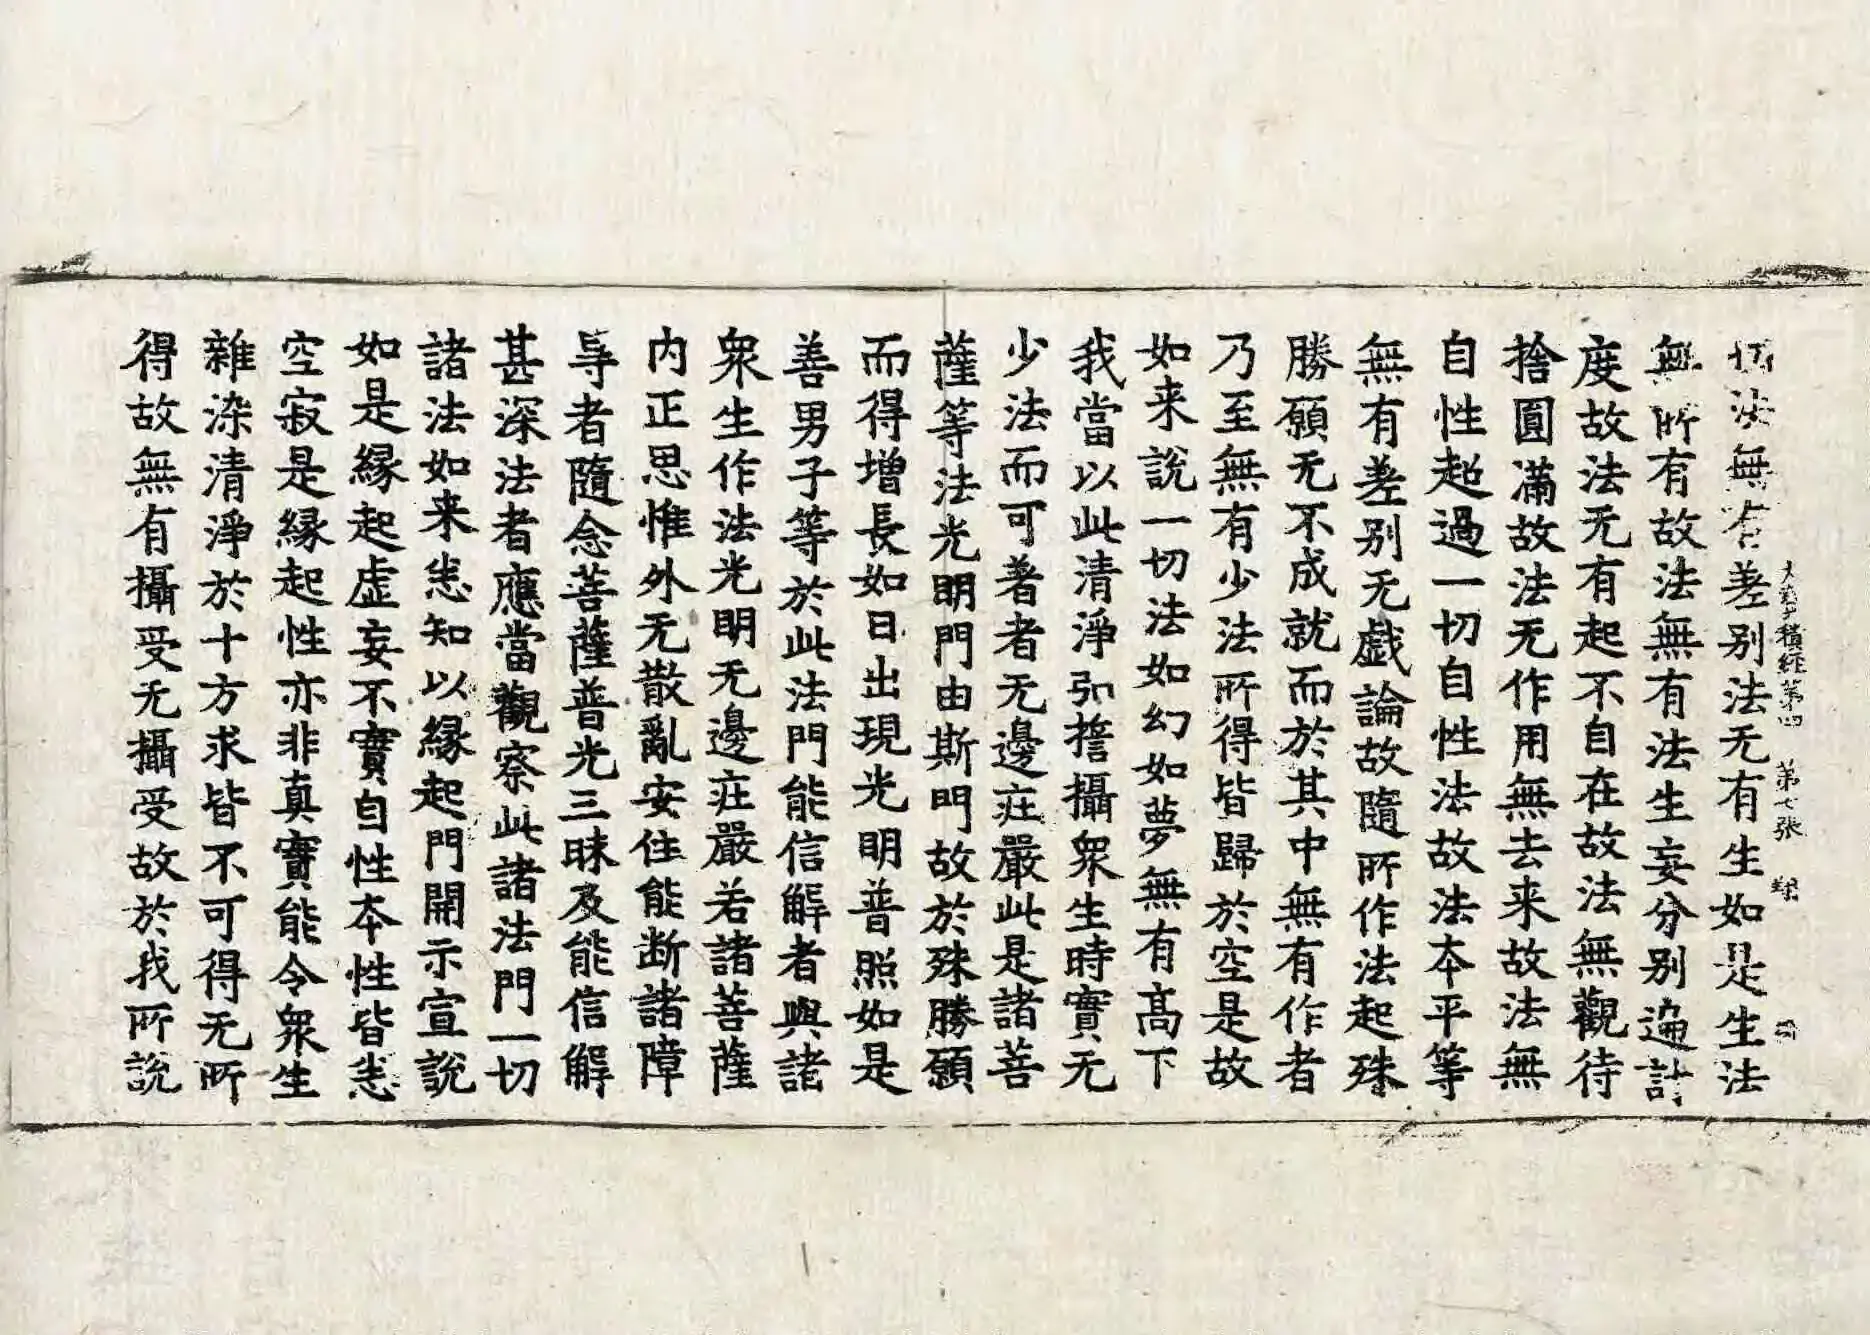 切法無有差别法无有生如是生法
無所有故法無有法生妄分别遍計
度故法无有起不自在故法無觀待
捨圓滿故法无作用無去来故法無
自性超過一切自性法故法本平等
無有差别无戯論故隨所作法起殊
勝願无不成就而於其中無有作者
乃至無有少法所得皆歸於空是故
如来説一切法如幻如夢無有髙下
我當以此清淨弘誓攝衆生時實无
少法而可著者无邊莊嚴此是諸菩
薩等法光明門由斯門故於殊勝願
而得增長如日出現光明普照如是
善男子等於此法門能信解者與諸
衆生作法光明无邊莊嚴若諸菩薩
内正思惟外无散亂安住能断諸障
导者隨念菩薩普光三昧及能信解
甚深法者應當觀察此諸法門一切
諸法如来悉知以縁起門開示宣説
如是縁起虚妄不實自性本性皆悉
空寂是縁起性亦非真實能令衆生
雜染清淨於十方求皆不可得无所
得故無有攝受无攝受故於我所説
大寶積經第四 第七張